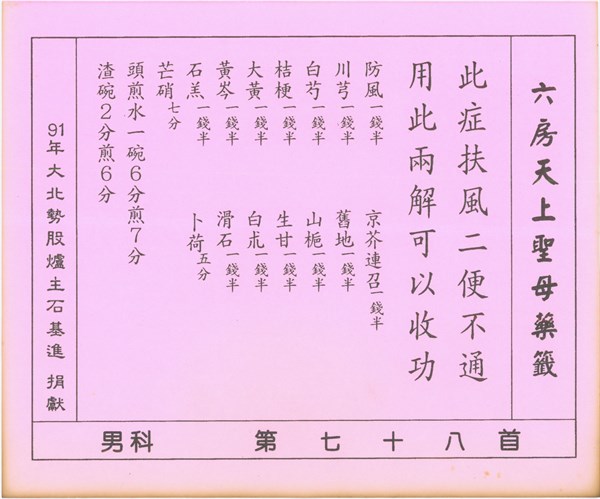 六房天上聖母藥籤
此症扶風二便不通
用此兩解可以收功
防風一錢半 京芥連召一錢半
川芎一錢半 舊地一錢半
白芍一錢半 山梔一錢半
桔梗一錢半 生甘一錢半
大黃一錢半 白朮一錢半
黃岑一錢半 滑石一錢半
石羔一錢半 卜荷五分
芒硝七分
頭煎水一碗6分煎7分
渣碗2分煎6分
91年大北勢股爐主石基進 捐獻
男科 第七十八首